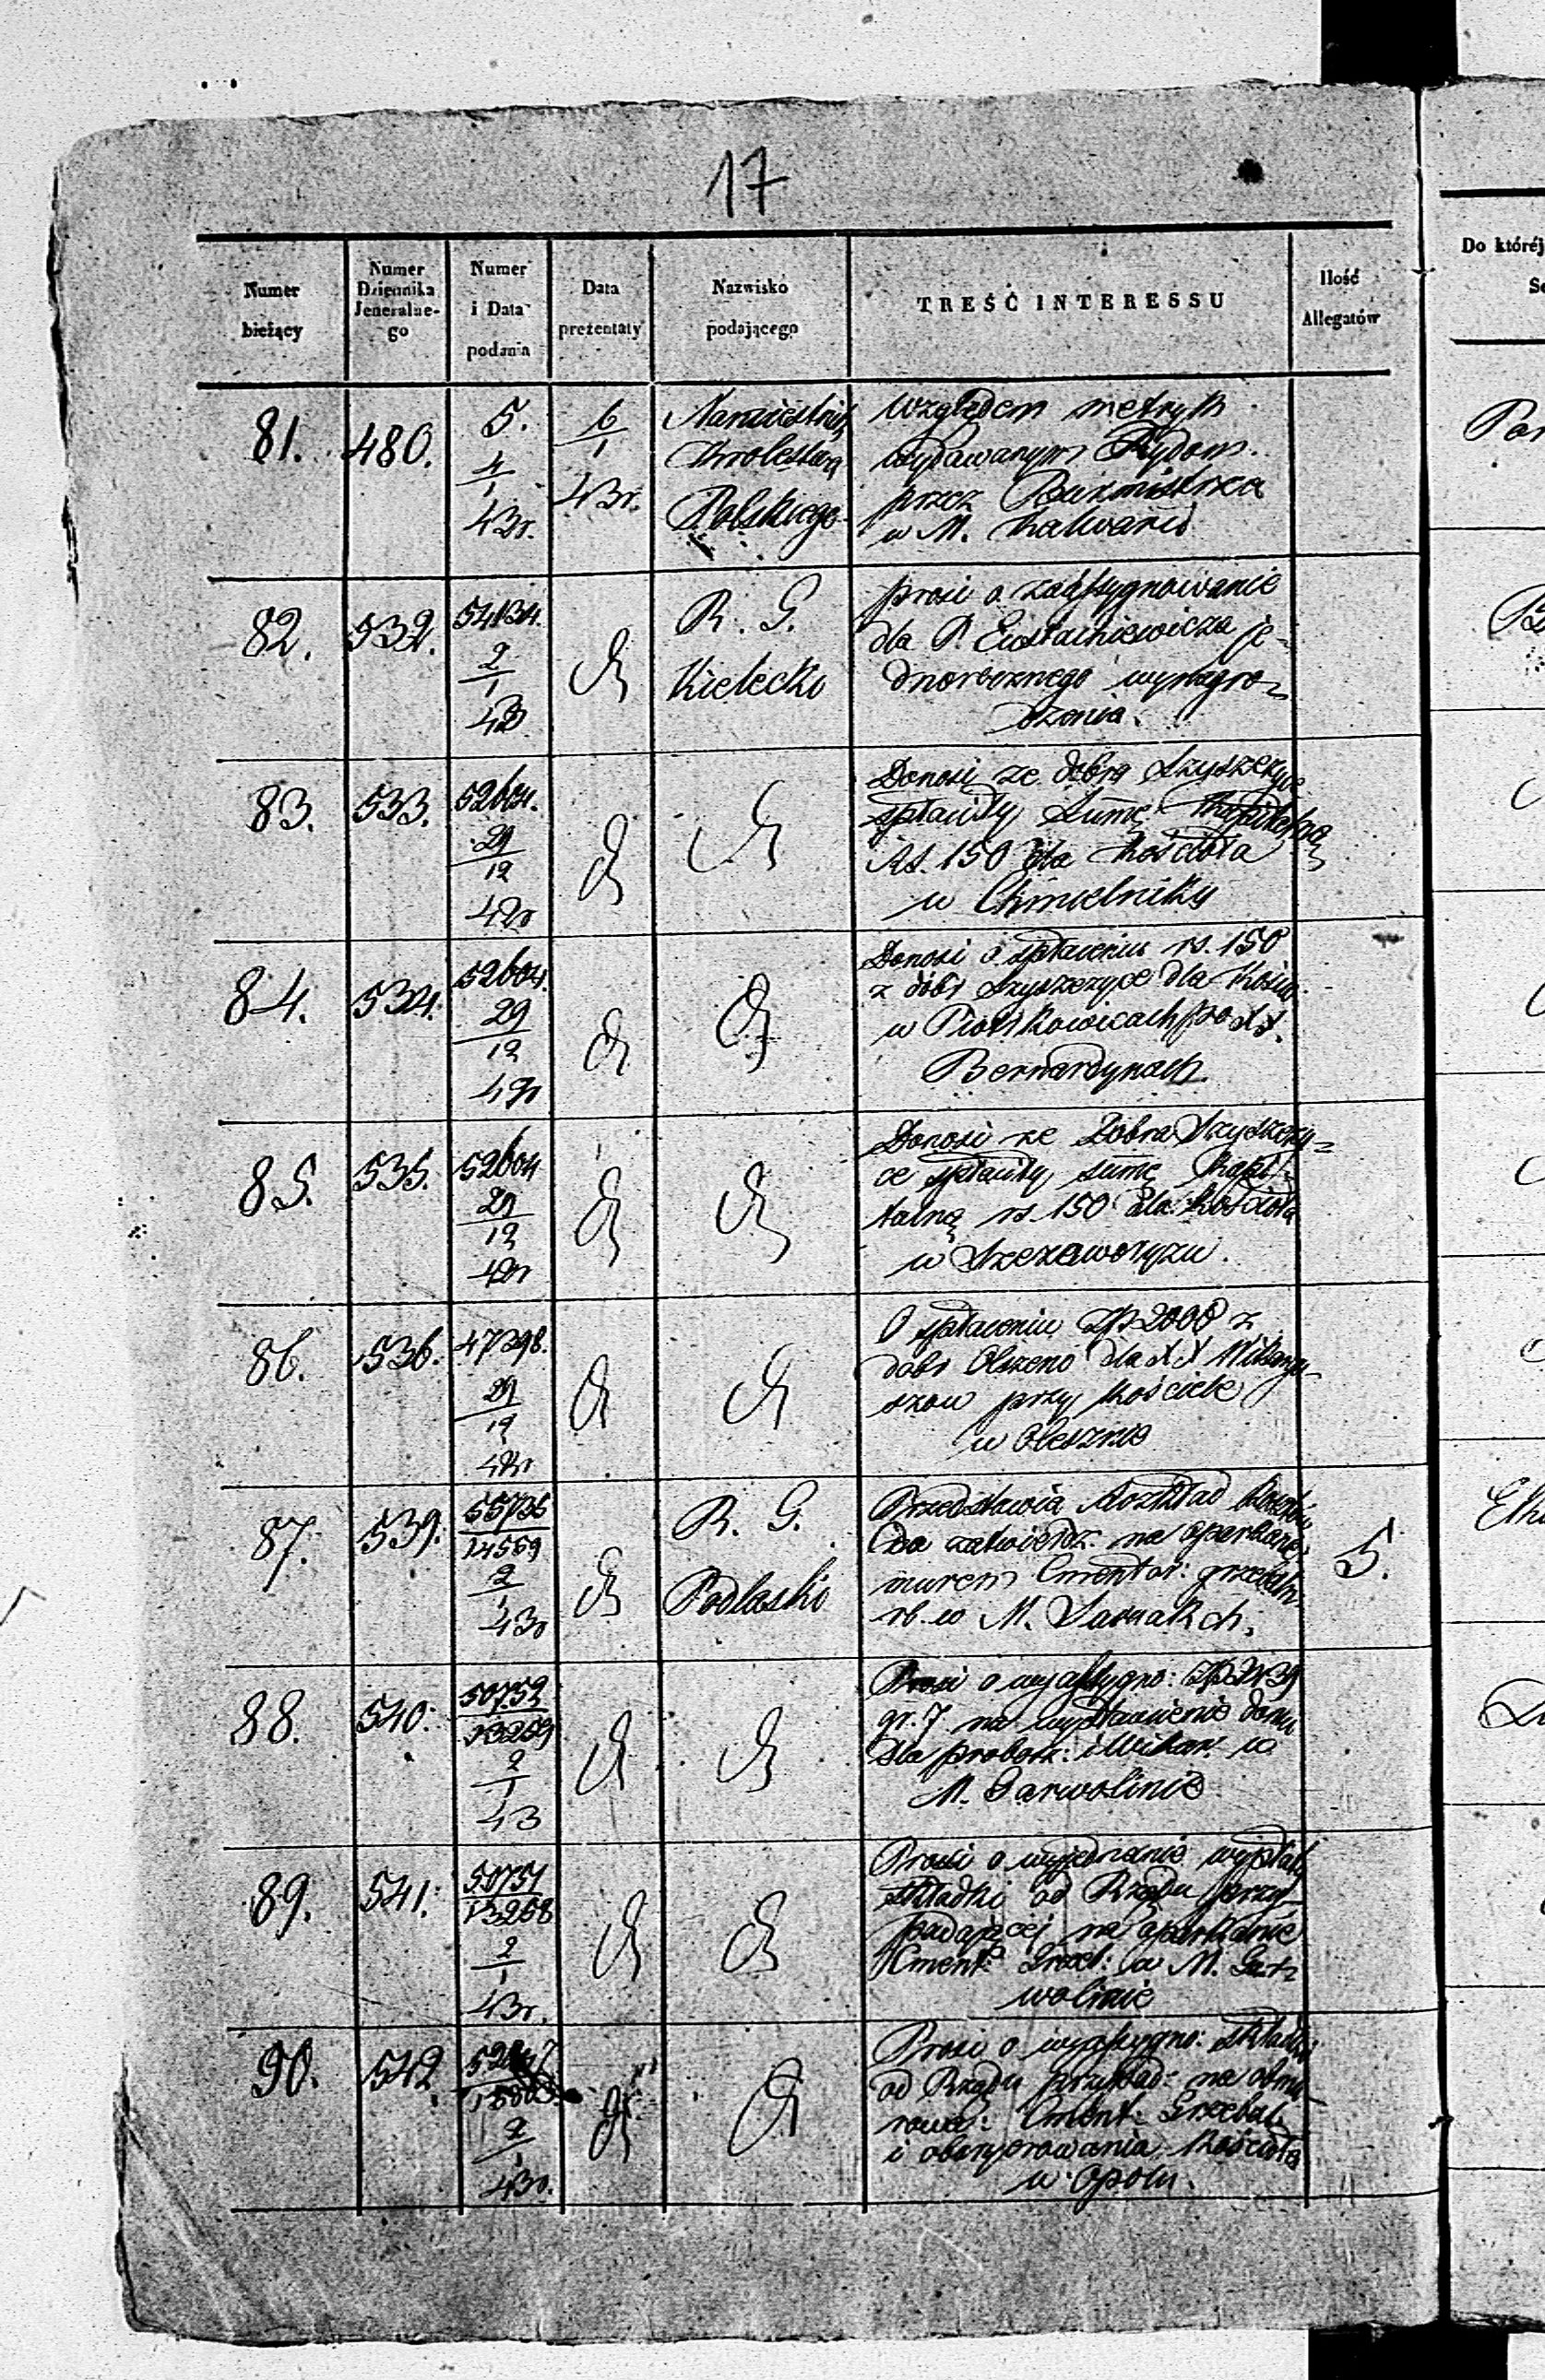 17
Numer bieżący
Numer Dziennika Jeneralne-go
Numer i Data podania
Data prezentaty
Nazwisko podającego
TREŚĆ INTERESSU
Ilość Allegatów
Do któréj
Se
81. 480. 5. 4/1 43r. 6/1 43r.
Namiestnik
Krolestwa
Polskiego
Względem metryk
wydawanym Żydom
przez Burmistrza
w M. Kalwarii
82. 532. 54134. 2/1 43
R. G.
Kielecki
prosi o zaassygnowanie
dla P. Eustachiewicza je-
dnorocznego wynagro-
dzenia.
83. 533. 52604. 29/12 42r
Donosi że dobra Szyszczyce
spłaciły Summę Kapitalną
rs. 150 dla Kościoła
w Chmielniku
84. 534. 52604. 29/12 42r
Donosi o spłaceniu rs. 150
z dóbr Szyszczyce dla Kościo.
w Piotrkowicach po XX.
Bernardynach
85. 535. 52604 29/12 42r
Donosi że Dobra Szyszczy-
ce spłaciły summę Kapi-
talną rs. 150 dla Kościoła
w Szczaworyżu.
86. 536. 47398. 29/12 42r
O spłaceniu Zp 2000 z
dobr dla XX
przy Kościele
w Olesznie
87. 539. 55735/14559 2/1 43r
R. G.
Podlaski
Przedstawia Rozkład Kosztów
do zatwierdz. na oparkanie
murem Cmentar: grzebaln.
rb. w M. Sarnakch.
5.
88. 540. 50752/13269 2/1 43
Prosi o wyassygno: Zp
gr. 7 na wystawienie domu
dla probosz: i Wikar. w
M. Garwolinie
89. 541. 50751/13268 2/1 43r.
Prosi o wyjednanie wypłaty
składki od Rządu przy-
padającej na oparkanie
Cment: Grzeb: w M. Gar-
wolinie
90. 542 2/1 43r.
Prosi o wyassygno: składki
od Rządu przypad: na obmu-
rowa: Cment: Grzebal.
i Kościoła
w Opolu.